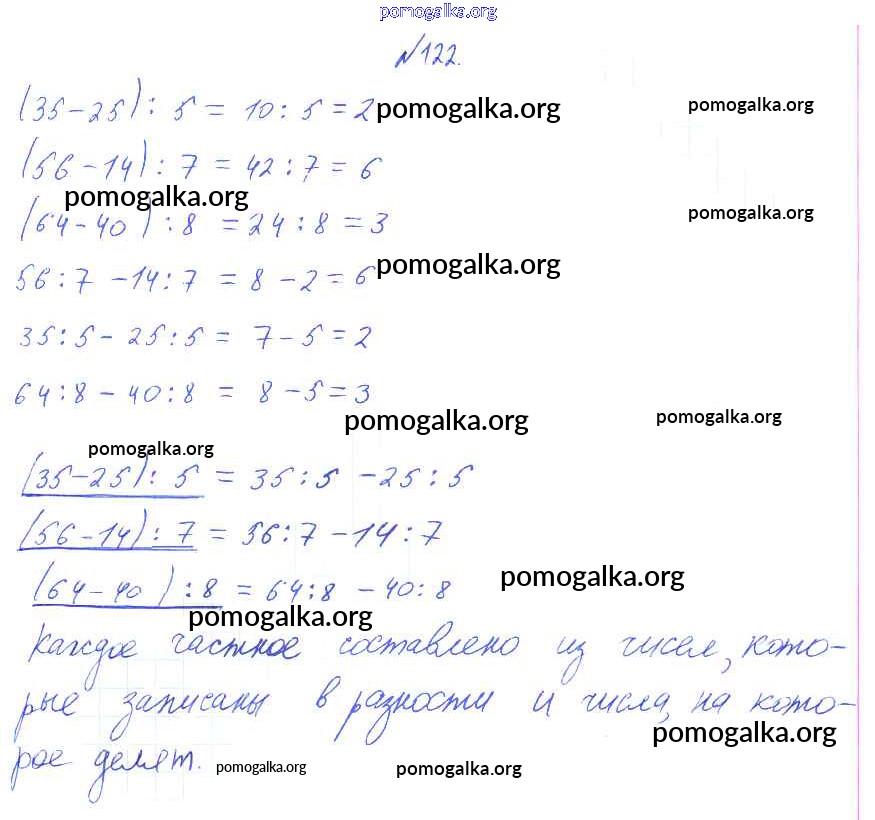 pomogalka.org
№122.
(35-25) : 5 = 10 : 5 = 2 pomogalka.org pomogalka.org
(56-14) : 7 = 42 : 7 = 6
pomogalka.org pomogalka.org
(64-40) : 8 = 24 : 8 = 3
56 : 7 - 14 : 7 = 8 - 2 = 6 pomogalka.org
35 : 5 - 25 : 5 = 7 - 5 = 2
64 : 8 - 40 : 8 = 8 - 5 = 3
pomogalka.org pomogalka.org
pomogalka.org
(35-25) : 5 = 35 : 5 - 25 : 5
(56-14) : 7 = 56 : 7 - 14 : 7
(64-40) : 8 = 64 : 8 - 40 : 8 pomogalka.org
pomogalka.org
Каждое частное составлено из чисел, кото-
рые записаны в разности и числа, на кото-
pomogalka.org
рое делят. pomogalka.org pomogalka.org